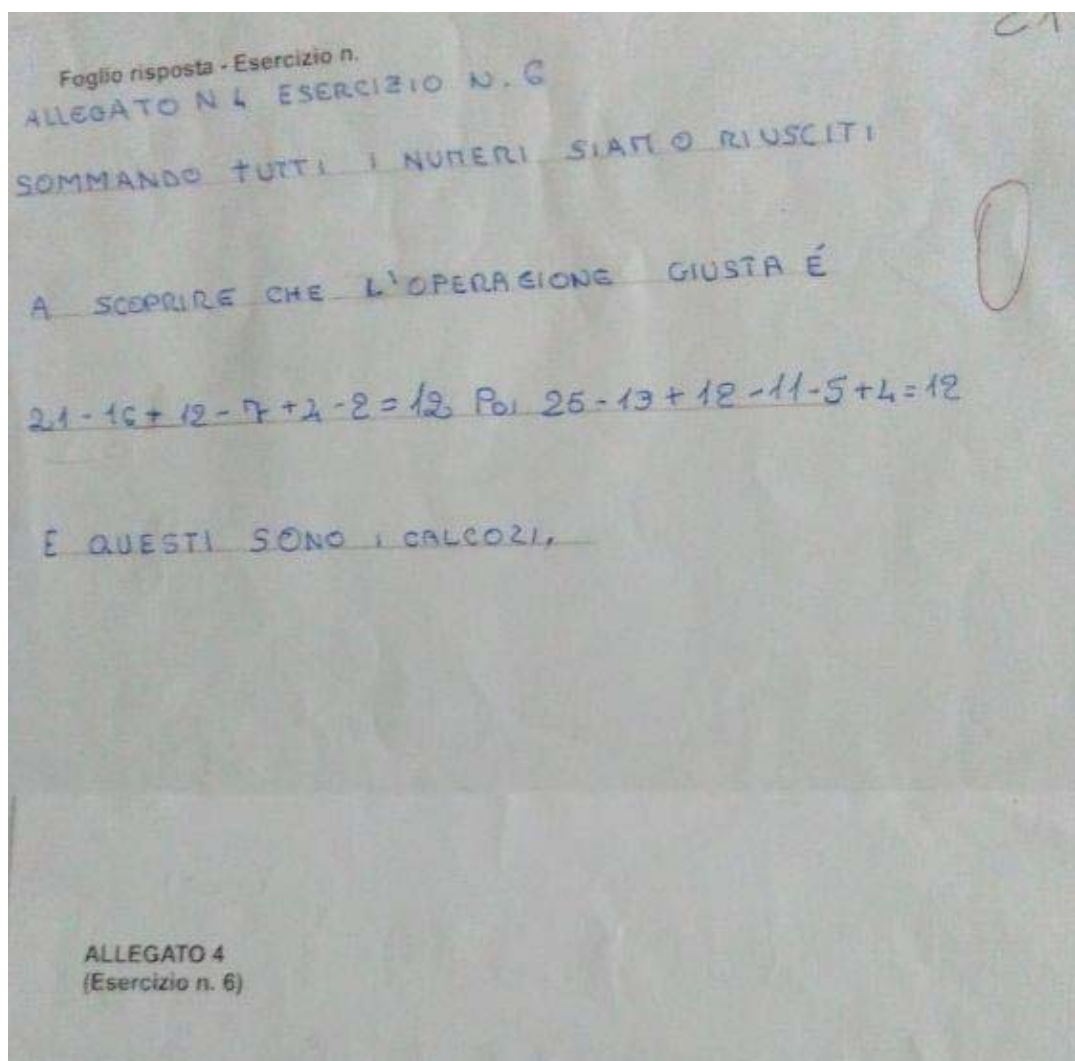 C1
Foglio risposta - Esercizio n.
ALLEGATO N 4 ESERCIZIO N. 6
SOMMANDO TUTTI I NUMERI SIAMO RIUSCITI
0
A SCOPRIRE CHE L'OPERAZIONE GIUSTA É
21-16+12-7+4-2=12 Poi 25-13+12-11-5+4=12
E QUESTI SONO I CALCOLI.
ALLEGATO 4
(Esercizio n. 6)